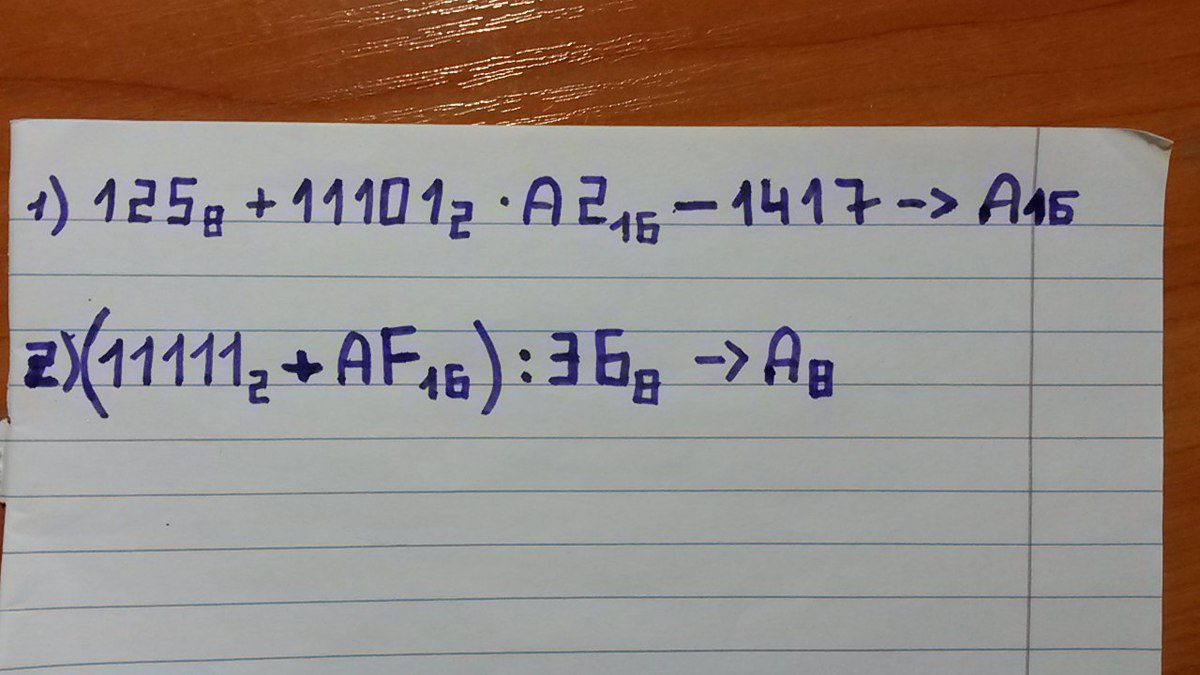 1) 125₈ + 11101₂ · A2₁₆ − 1417 -> A₁₆
2) (11111₂ + AF₁₆) : 36₈ -> A₈